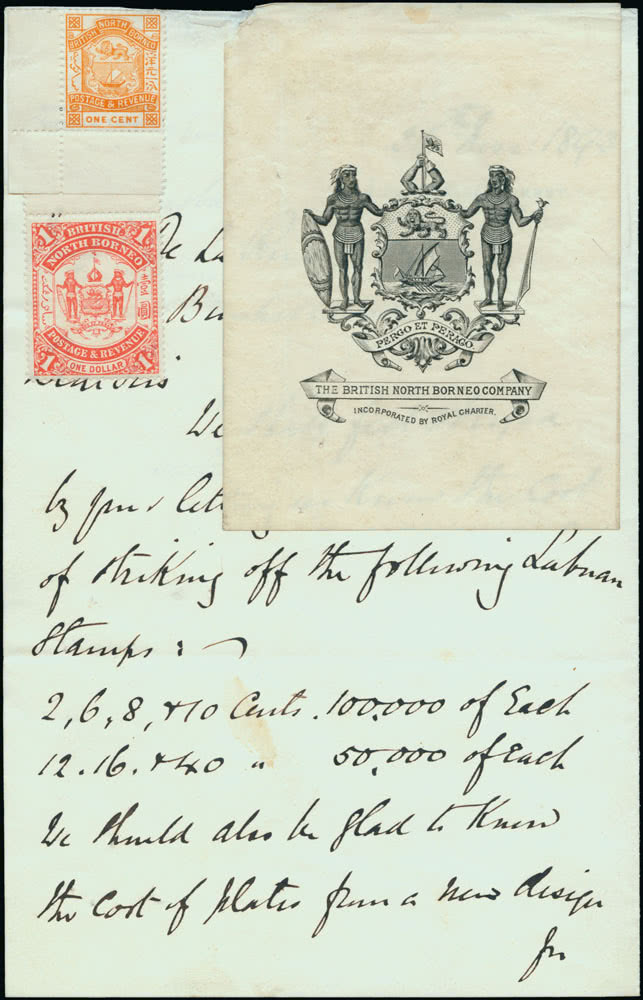 BRITISH NORTH BORNEO
POSTAGE & REVENUE
ONE CENT
1 BRITISH 1
NORTH BORNEO
POSTAGE & REVENUE
1 ONE DOLLAR 1
PERGO ET PERAGO
THE BRITISH NORTH BORNEO COMPANY
INCORPORATED BY ROYAL CHARTER.
De La
We
by your
of striking off the following Labuan
Stamps :
2, 6, 8, & 10 Cents. 100,000 of Each
12. 16. & 40 " 50,000 of Each
We should also be glad to Know
the cost of plates from a new design
for